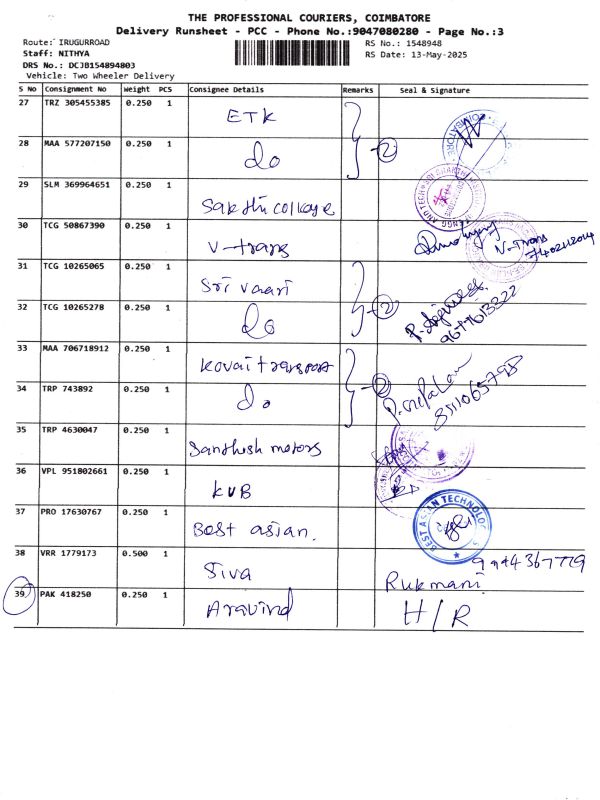 THE PROFESSIONAL COURIERS, COIMBATORE
Delivery Runsheet - PCC - Phone No.:9047080280 - Page No.:3
Route: IRUGURROAD
RS No.: 1548948
Staff: NITHYA
RS Date: 13-May-2025
DRS No.: DCJB154894803
Vehicle: Two Wheeler Delivery
S No Consignment No Weight PCS Consignee Details Remarks Seal & Signature
27 TRZ 305455385 0.250 1 ETK
28 MAA 577207150 0.250 1 do 2 COIMBATORE
29 SLM 369964651 0.250 1 Sakthi college
30 TCG 50867390 0.250 1 V-trans V-Trans
31 TCG 10265065 0.250 1 Sri vaari
32 TCG 10265278 0.250 1 do 2 9677613222
33 MAA 706718912 0.250 1 kovai transport
34 TRP 743892 0.250 1 do 2
35 TRP 4630047 0.250 1 Santhosh motors
36 VPL 951802661 0.250 1 KVB
37 PRO 17630767 0.250 1 Best asian. BEST ASIAN TECHNOLOGIES
38 VRR 1779173 0.500 1 Siva Rukmani 9994367779
39 PAK 418250 0.250 1 Aravind H/R